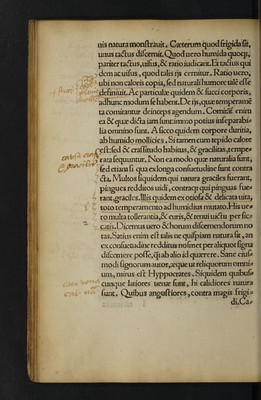 nis natura monstrauit. Cæterum quod frigida sit,
unus tactus discernit. Quod uero humida quoq;,
pariter tactus, uisus, & ratio iudicant. Et tactus qui
dem ac uisus, quod talis ijs cernitur. Ratio uero,
ubi non caloris copia, sed naturali humore talẽ esse
definiuit. Ac particulæ quidem & succi corporis,
ad hunc modum se habent. De ijs, quæ temperamẽ
ta comitantur deinceps agendum. Comitãt enim
ea & quæ dicta iam sunt: imo potius inseparabi-
lia omnino sunt. A sicco quidem corpore duritia,
ab humido mollicies. Si tamen cum tepido calore
est: sed & crassitudo habitus, & gracilitas, tempe-
rata sequuntur. Non ea modo quæ naturalia sunt,
sed etiam si qua ex longa consuetudine sunt contra
cta. Multos siquidem qui natura graciles fuerant,
pingues redditos uidi, contraq; qui pingues fue-
rant, graciles. Illis quidem ex ociosa & delicata uita,
toto temperamento ad humidius mutato. His ue-
ro multa tollerantia, & curis, & tenui uictu per sic-
catis. Dicemus uero & horum discernendorum no
tas. Satius enim est talis ne quispiam natura sit, an
ex consuetudine redditus nosmet per aliquot signa
discernere posse, q̃ ab alio id quærere. Sane eius-
modi signorum autor, æque ut reliquorum omni-
um, mirus est Hyppocrates. Siquidem quibus-
cunque latiores uenæ sunt, hi calidiores natura
sunt. Quibus angustiores, contra magis frigi-
di. Ca-